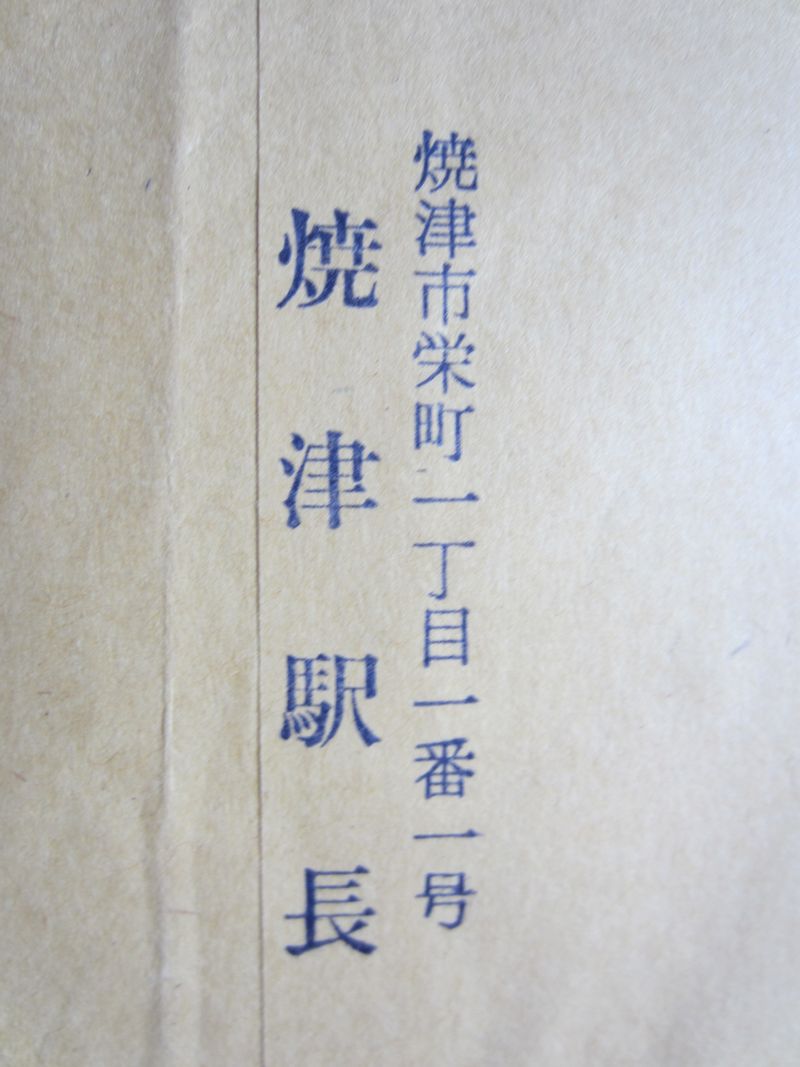 焼津市栄町一丁目一番一号
焼津駅長